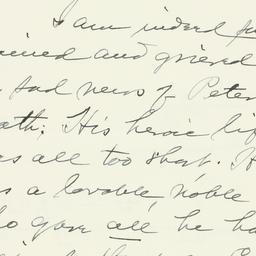 I am indeed
ained and grieved
sad news of Peter
ath; His heroic lif
as all too short. H
s a lovable, noble
ho gave all he ha